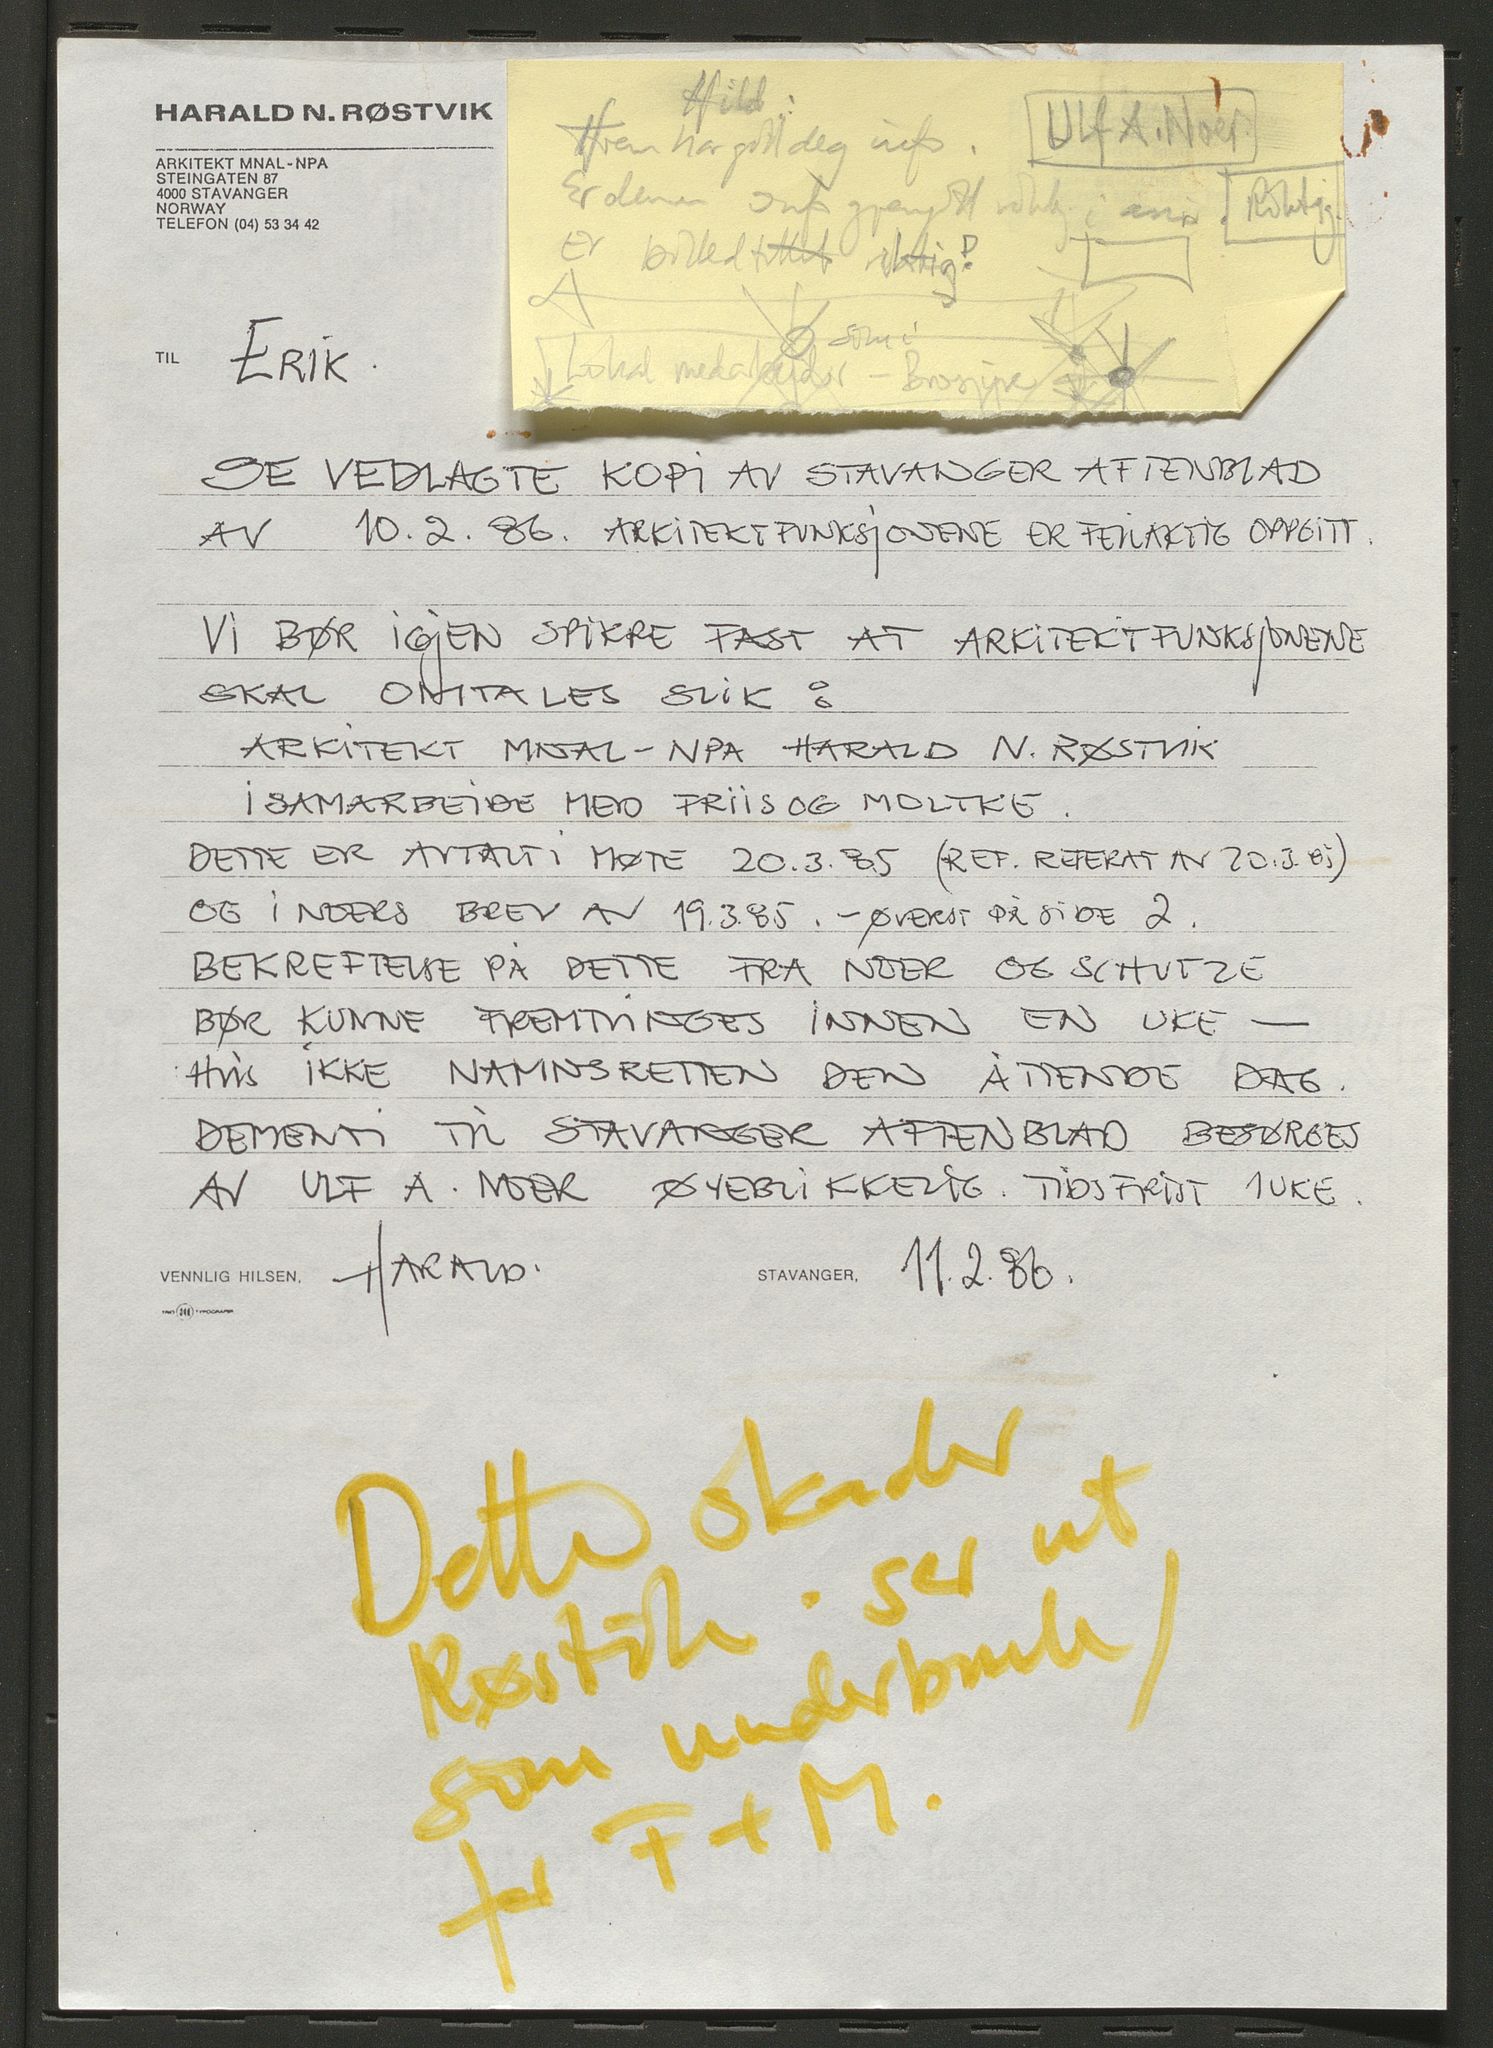 HARALD N. RØSTVIK
ARKITEKT MNAL-NPA
STEINGATEN 87
4000 STAVANGER
NORWAY
TELEFON (04) 53 34 42
Hild:
Hvem har gitt deg info.
Ulf A. Noer.
Er denne info gjengitt riktig i avis.
Riktig.
Er billedtittel riktig?
som i
Lokal medarbeider - Brosjyre
TIL ERIK.
SE VEDLAGTE KOPI AV STAVANGER AFTENBLAD
AV 10.2.86. ARKITEKTFUNKSJONENE ER FEILAKTIG OPPGITT.
VI BØR IGJEN SPIKRE FAST AT ARKITEKTFUNKSJONENE
SKAL OMTALES SLIK:
ARKITEKT MNAL-NPA HARALD N. RØSTVIK
I SAMARBEIDE MED FRIIS OG MOLTKE.
DETTE ER AVTALT I MØTE 20.3.85 (REF. REFERAT AV 20.3.85)
OG I NOERS BREV AV 19.3.85. - ØVERST PÅ SIDE 2.
BEKREFTELSE PÅ DETTE FRA NOER OG SCHUTZE
BØR KUNNE FREMTVINGES INNEN EN UKE —
HVIS IKKE NAMNSRETTEN DEN ÅTTENDE DAG.
DEMENTI TIL STAVANGER AFTENBLAD BESØRGES
AV ULF A. NOER ØYEBLIKKELIG. TIDSFRIST 1 UKE.
VENNLIG HILSEN, HARALD. STAVANGER, 11.2.86.
Dette skader
Røstvik. ser ut
som underbruk/
for F + M.